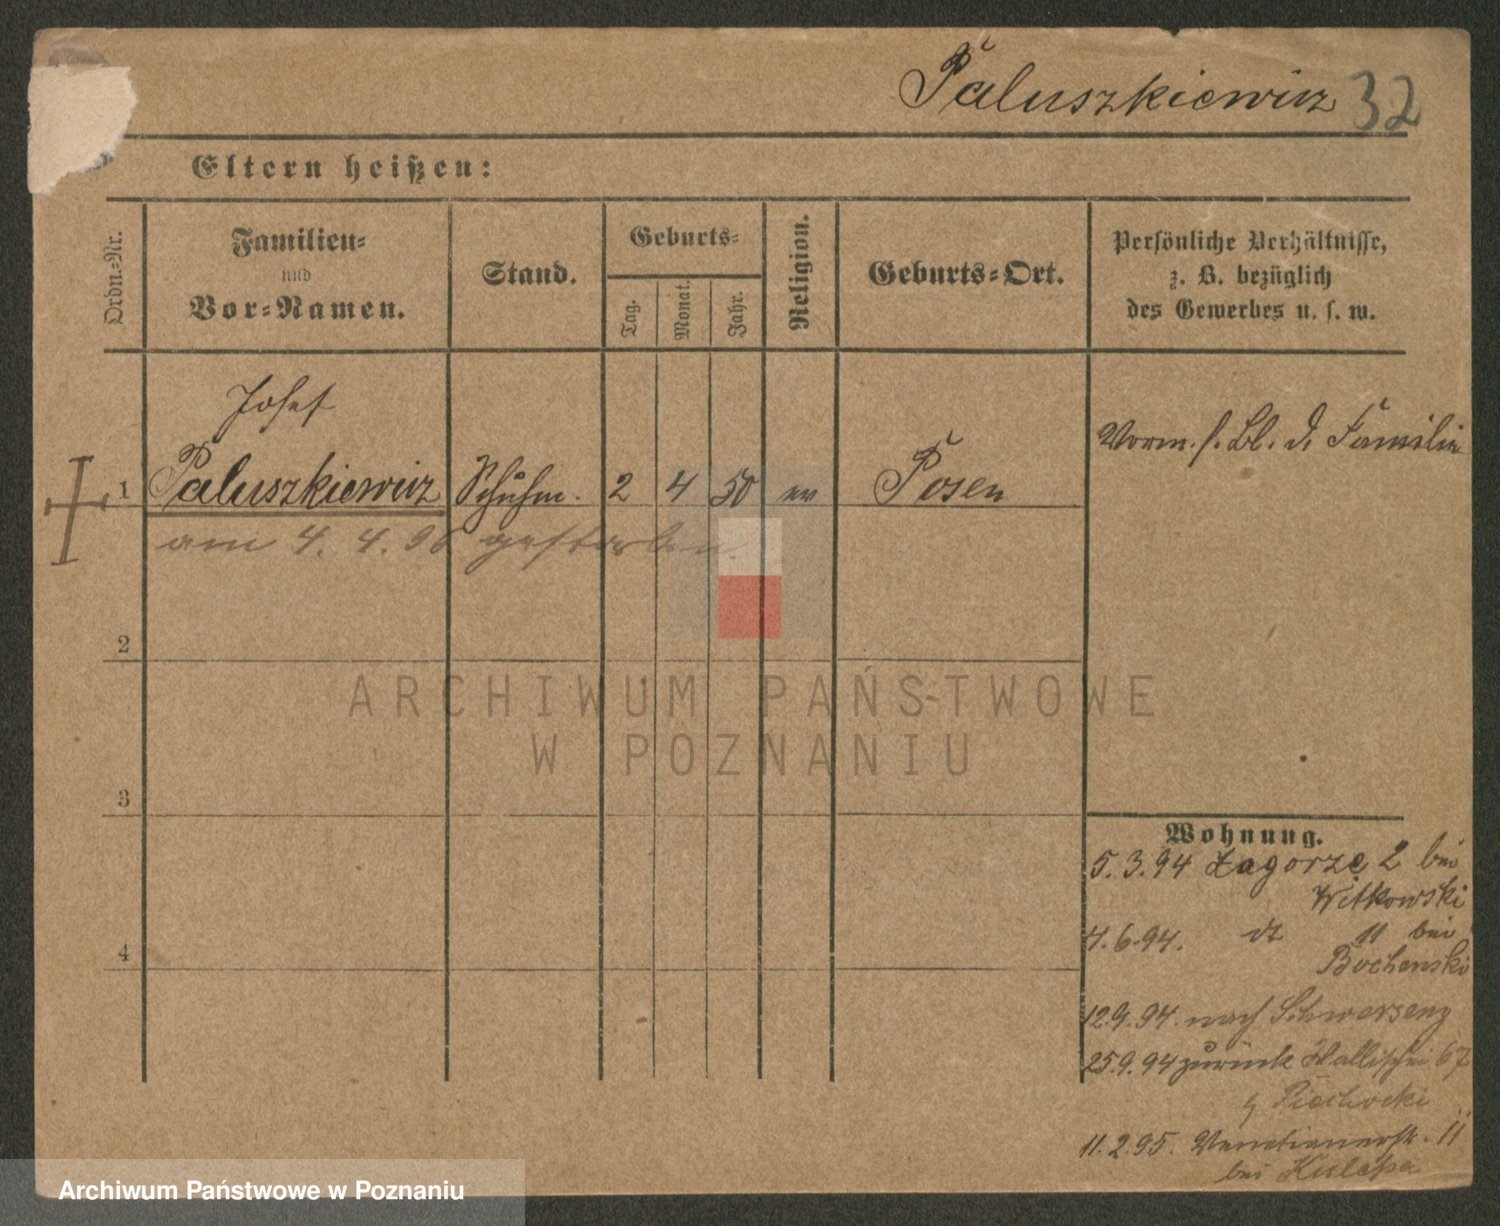 Paluszkiewicz 32
Eltern heißen:
Ordn.-Nr.
Familien-
und
Vor-Namen.
Stand.
Geburts-
Tag.
Monat.
Jahr.
Religion.
Geburts-Ort.
Persönliche Verhältnisse,
z. B. bezüglich
des Gewerbes u. s. w.
Josef
Vorm. s. Bl. d. Familie
1 Paluszkiewicz Schuhm. 2 4 50 Posen
am 4. 4. 96 gestorben.
2
ARCHIWUM PAŃSTWOWE
W POZNANIU
3
Wohnung.
5.3.94 Zagorze 2 bei
Witkowski
4.6.94. dt 11 bei
Bochenski
4
12.9.94. nach Schwersenz
25.9.94 zurück Wallischei 67
Piechocki
11.2.95. Venetianerstr. 11
bei
Archiwum Państwowe w Poznaniu